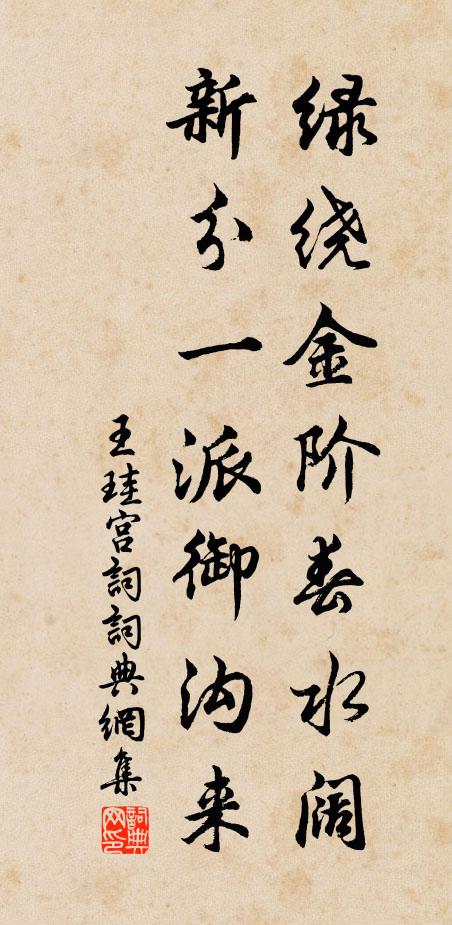 绿绕金阶春水阔
新分一派御沟来
王珪宫詞詞典網集
詞典网印